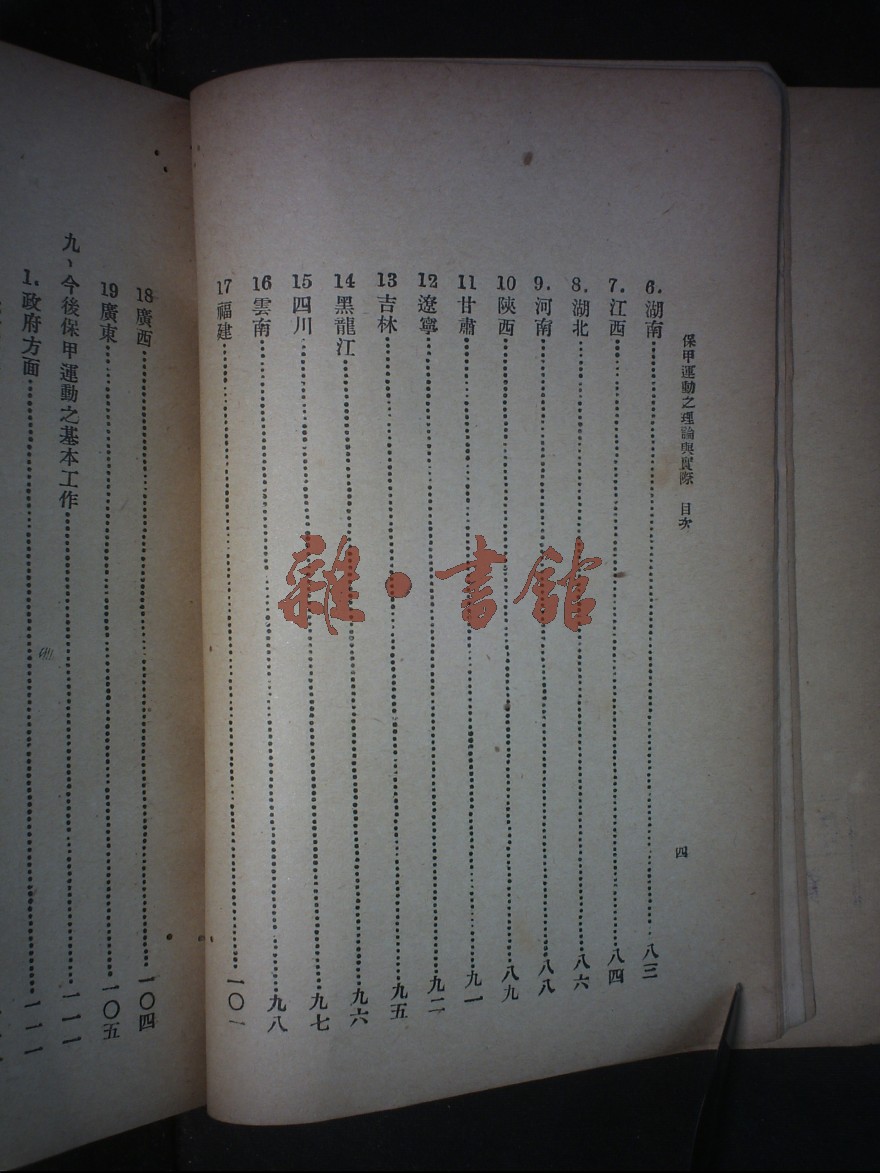 保甲運動之理論與實際 目次
四
6. 湖南 八三
7. 江西 八四
8. 湖北 八六
9. 河南 八八
10 陝西 八九
11 甘肅 九一
12 遼寧 九二
13 吉林 九五
14 黑龍江 九六
15 四川 九七
16 雲南 九八
17 福建 一〇一
18 廣西 一〇四
19 廣東 一〇五
九、今後保甲運動之基本工作 一一一
1. 政府方面 一一一
雜·書館